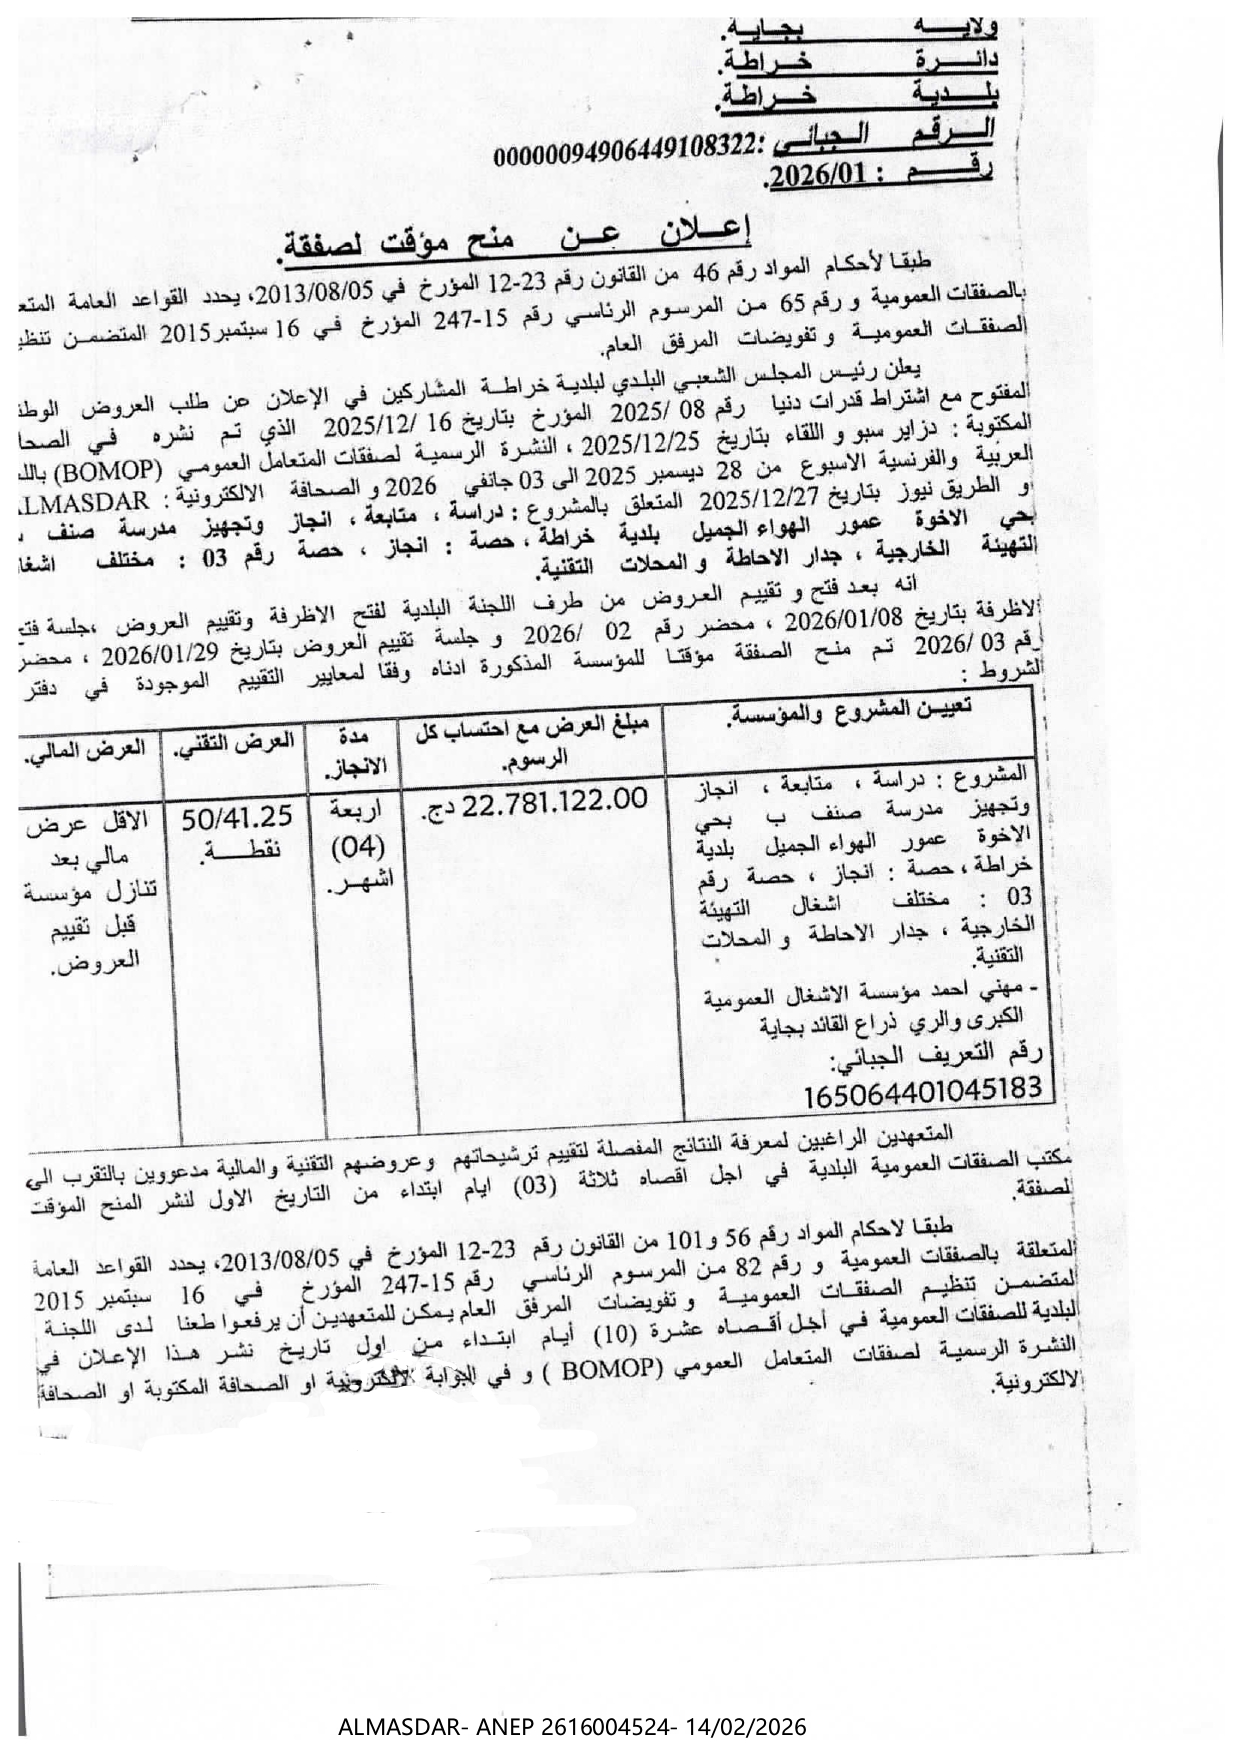 ولايــة بجـايـة.
دائــرة خــراطة.
بلــدية خــراطة.
الــرقم الــجبائي :00000094906449108322
رقــــم : 2026/01.
إعــلان عــن منح مؤقت لصفقة.
طبقـا لأحكـام المواد رقم 46 من القانون رقم 23-12 المؤرخ في 2013/08/05، يحدد القواعد العامة
بالصفقات العمومية و رقم 65 مـن المرسوم الرئاسي رقم 15-247 المؤرخ فـي 16 سبتمبر2015 المتضمـن
الصفقـات العموميـة و تفويضات المرفق العام.
يعلن رئيس المجلس الشعبي البلدي لبلدية خراطـة المشاركين في الإعلان عن طلب العروض
المفتوح مع اشتراط قدرات دنيا رقم 08 /2025 المؤرخ بتاريخ 16 /2025/12 الذي تـم نشره فـي
المكتوبة : دزاير سبو و اللقاء بتاريخ 2025/12/25 ، النشرة الرسمية لصفقات المتعامل العمومي (BOMOP)
العربية والفرنسية الاسبوع من 28 ديسمبر 2025 الى 03 جانفي 2026 و الصحافة الالكترونية : ALMASDAR
و الطريق نيوز بتاريخ 2025/12/27 المتعلق بالمشروع : دراسة ، متابعة ، انجاز وتجهيز مدرسة صنف
بحي الاخوة عمور الهواء الجميل بلدية خراطة ، حصة : انجاز ، حصة رقم 03 : مختلف
التهيئة الخارجية ، جدار الاحاطة و المحلات التقنية.
انه بعـد فتح و تقييـم العـروض من طرف اللجنة البلدية لفتح الاظرفة وتقييم العروض ،جلسة
الاظرفة بتاريخ 2026/01/08 ، محضر رقم 02 /2026 و جلسة تقييم العروض بتاريخ 2026/01/29 ، محضر
رقم 03 /2026 تـم منـح الصفقة مؤقتـا للمؤسسة المذكورة ادناه وفقا لمعايير التقييم الموجودة في دفتر
الشروط :
تعييـن المشروع والمؤسسة.
مبلغ العرض مع احتساب كل الرسوم.
مدة الانجاز.
العرض التقني.
العرض المالي.
المشروع : دراسة ، متابعة ، انجاز
وتجهيز مدرسة صنف ب بحي
الاخوة عمور الهواء الجميل بلدية
خراطة ، حصة : انجاز ، حصة رقم
03 : مختلف اشغال التهيئة
الخارجية ، جدار الاحاطة و المحلات
التقنية.
- مهني احمد مؤسسة الاشغال العمومية
الكبرى والري ذراع القائد بجاية
رقم التعريف الجبائي:
165064401045183
22.781.122.00 دج.
اربعة
(04)
اشهـر.
50/41.25
نقطــة.
الاقل عرض
مالي بعد
تنازل مؤسسة
قبل تقييم
العروض.
المتعهدين الراغبين لمعرفة النتائج المفصلة لتقييم ترشيحاتهم وعروضهم التقنية والمالية مدعووين بالتقرب الى
مكتب الصفقات العمومية البلدية في اجل اقصاه ثلاثة (03) ايام ابتداء من التاريخ الاول لنشر المنح المؤقت
لصفقة.
طبقـا لاحكام المواد رقم 56 و101 من القانون رقم 23-12 المؤرخ في 2013/08/05، يحدد القواعد العامة
المتعلقة بالصفقات العمومية و رقم 82 مـن المرسوم الرئاسي رقم 15-247 المؤرخ فـي 16 سبتمبر 2015
المتضمـن تنظيـم الصفقـات العموميـة و تفويضات المرفق العام يمكـن للمتعهديـن أن يرفعـوا طعنـا لـدى اللجنـة
البلدية للصفقات العمومية فـي أجـل أقـصـاه عشـرة (10) أيـام ابتـداء مـن اول تاريـخ نشر هـذا الإعـلان في
النشرة الرسمية لصفقات المتعامل العمومي (BOMOP ) و في البوابة الالكترونية او الصحافة المكتوبة او الصحافة
الالكترونية.
ALMASDAR- ANEP 2616004524- 14/02/2026